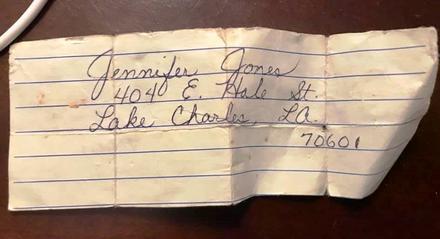 Jennifer Jones
404 E. Hale St.
Lake Charles, LA.
70601